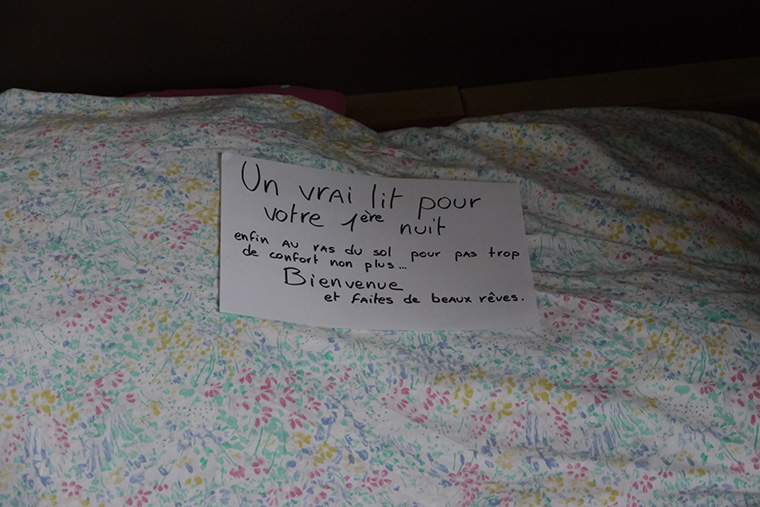 Un vrai lit pour
votre 1ère nuit
enfin au ras du sol pour pas trop
de confort non plus...
Bienvenue
et faites de beaux rêves.